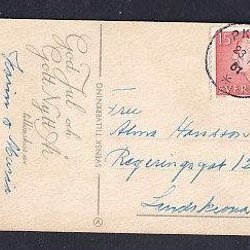 God Jul och
Gott Nytt År
tillönskas av
Karin o Maria
SVENSK TILLVERKNING
15
SVERI
PK
23
61
Fru
Alma Hansson
Regeringsgat 12
Landskrona